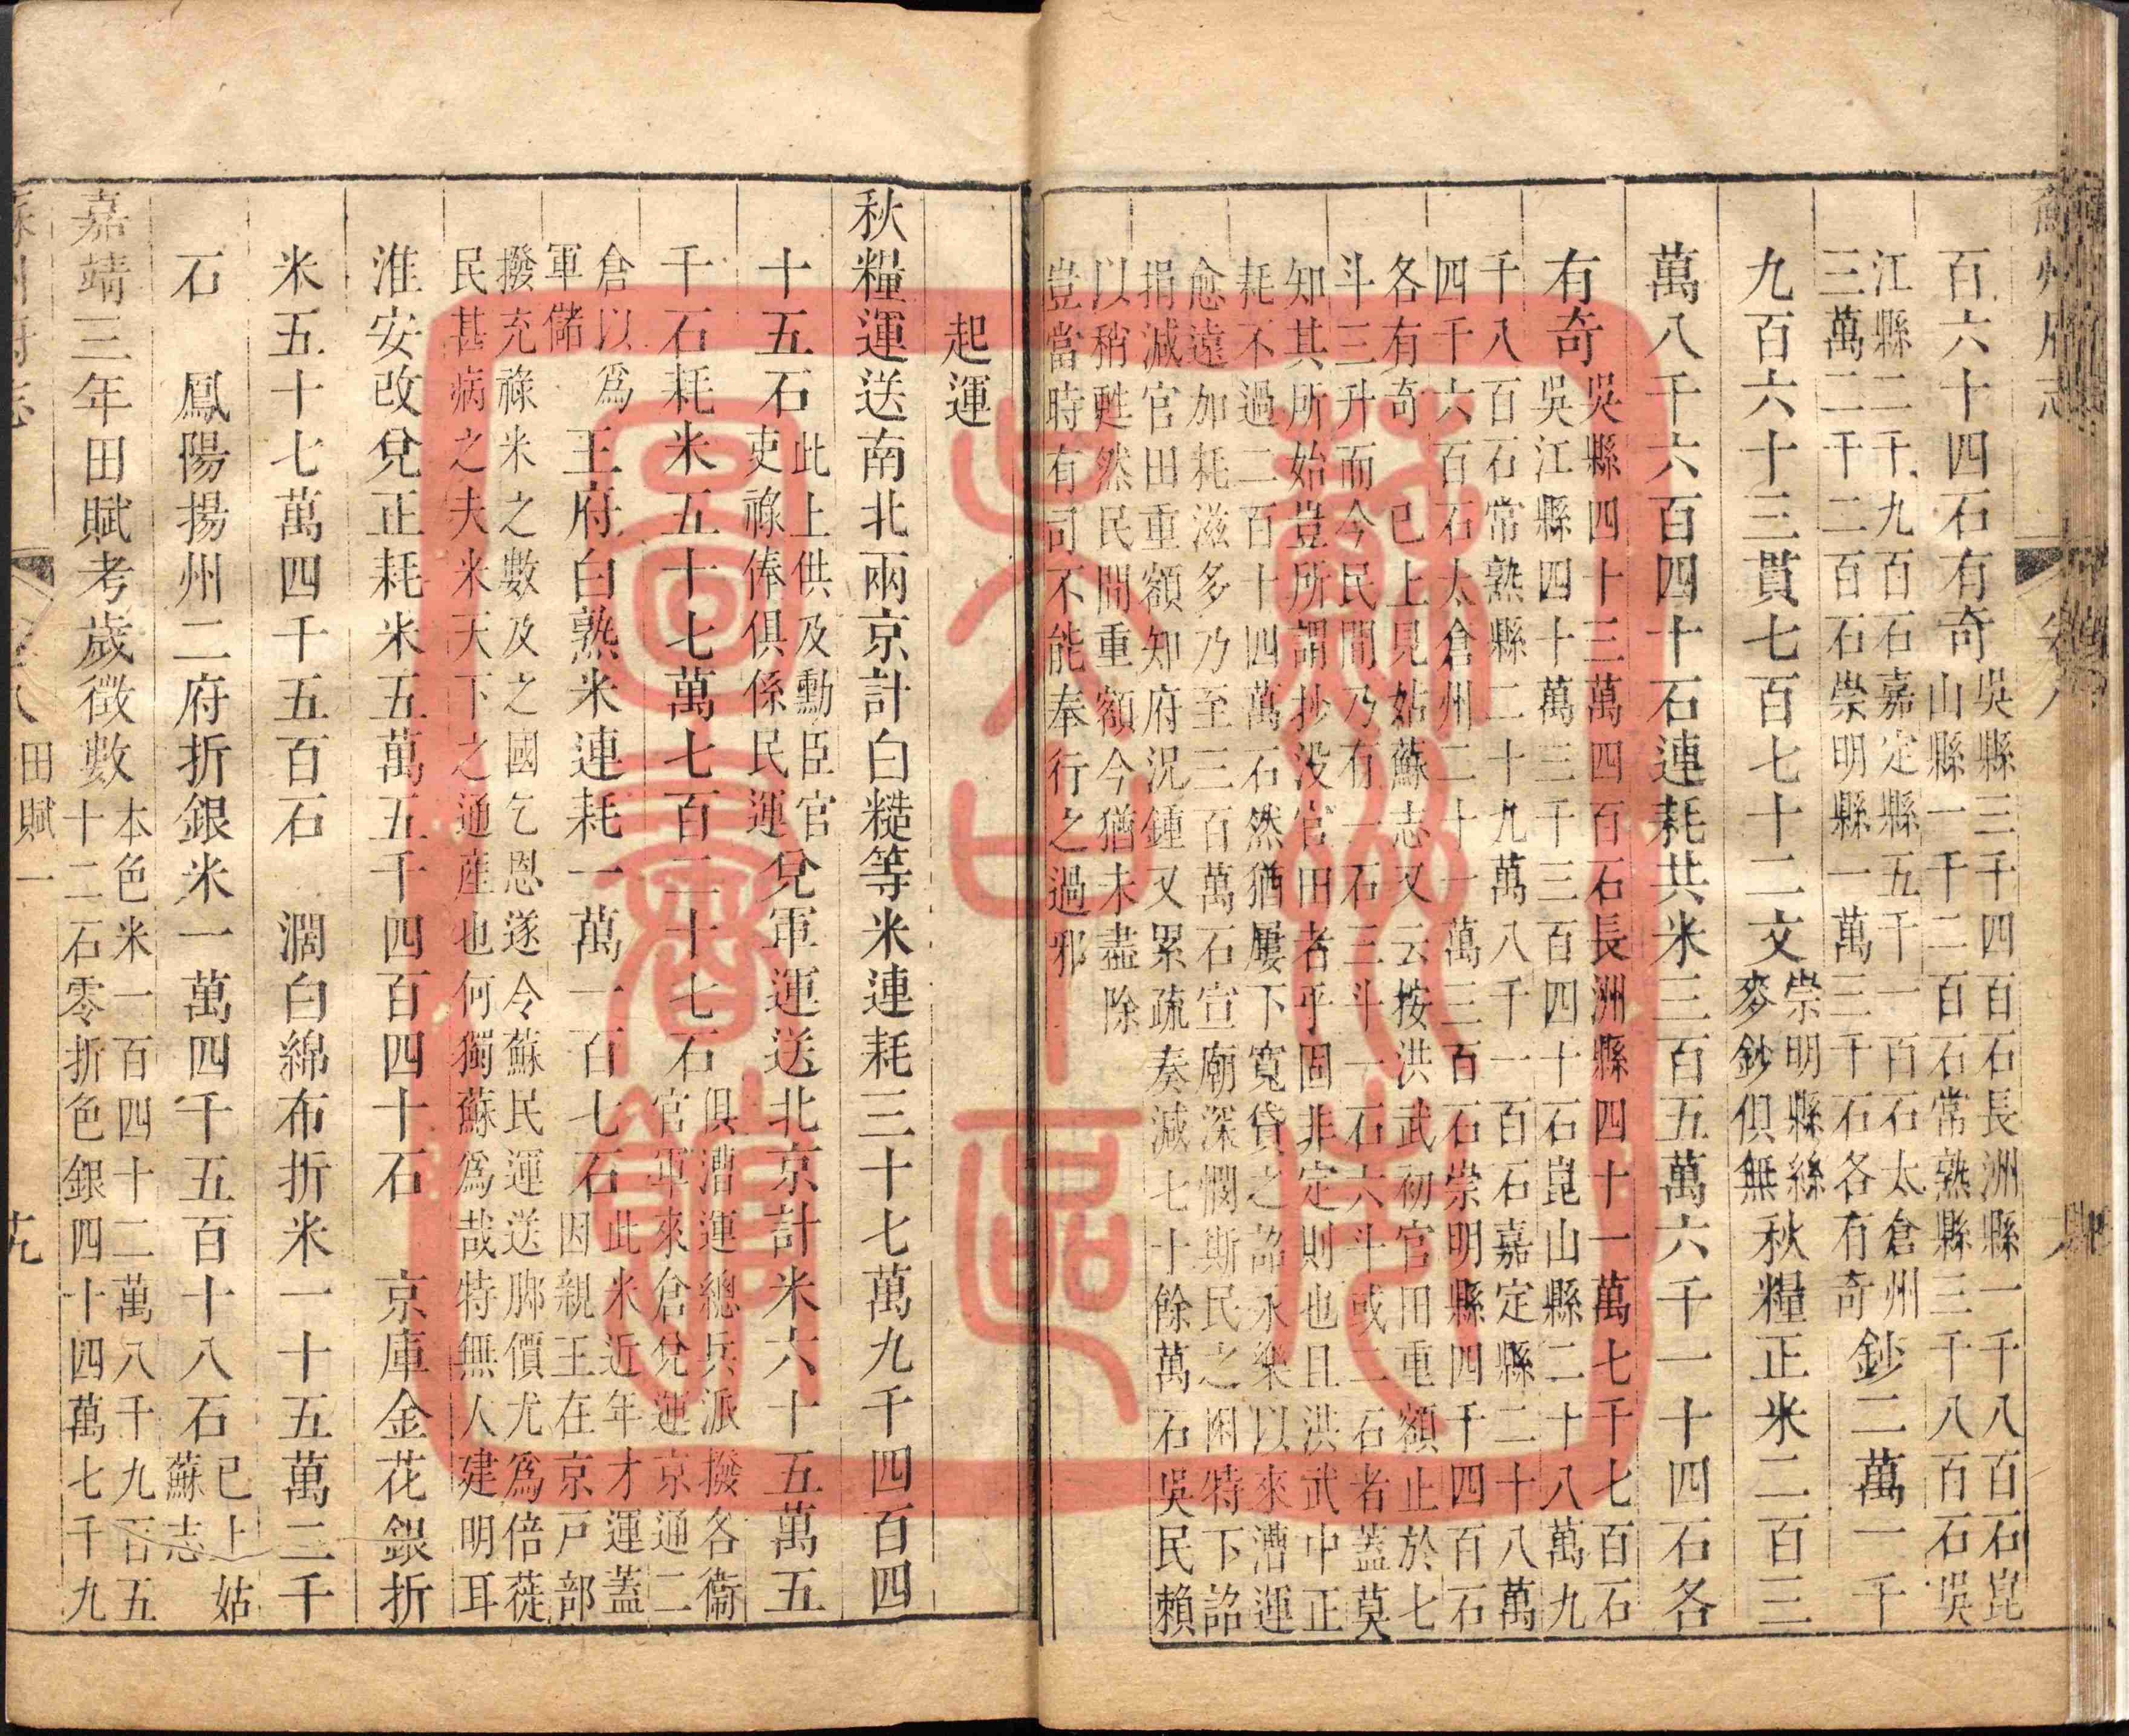 百六十四石有奇吳縣三千四百石長洲縣一千八百石崑
山縣一千二百石常熟縣三千八百石吳
江縣二千九百石嘉定縣五千一百石太倉州
三萬二千二百石崇明縣一萬三千石各有奇鈔二萬一千
九百六十三貫七百七十二文崇明縣絲
麥鈔俱無秋糧正米二百三
萬八千六百四十石連耗共米三百五萬六千一十四石各
有奇吳縣四十三萬四百石長洲縣四十一萬七千七百石
吳江縣四十萬三千三百四十石崑山縣二十八萬九
千八百石常熟縣二十九萬八千一百石嘉定縣二十八萬
四千六百石太倉州二十一萬三百石崇明縣四千四百石
各有奇 已上見姑蘇志又云按洪武初官田重額止於七
斗三升而今民間乃有一石三斗一石六斗或二石者蓋莫
知其所始豈所謂抄没官田者乎固非定則也且洪武中正
耗不過二百十四萬石然猶屢下寬貸之詔永樂以來漕運
愈遠加耗滋多乃至三百萬石宣廟深憫斯民之困特下詔
捐減官田重額知府況鍾又累疏奏減七十餘萬石吳民賴
以稍甦然民間重額今猶未盡除
豈當時有司不能奉行之過邪
起運
秋糧運送南北兩京計白糙等米連耗三十七萬九千四百四
十五石此上供及勳臣官
吏祿俸俱係民運兌軍運送北京計米六十五萬五
千石耗米五十七萬七百二十七石俱漕運總兵派撥各衞
官軍來倉兌運京通二
倉以爲
軍儲王府白熟米連耗一萬一百七石此米近年才運蓋
因親王在京戶部
撥充祿米之數及之國乞恩遂令蘇民運送腳價尤爲倍蓰
民甚病之夫米天下之通產也何獨蘇爲哉特無人建明耳
淮安改兌正耗米五萬五千四百四十石 京庫金花銀折
米五十七萬四千五百石 濶白綿布折米一十五萬二千
石 鳳陽揚州二府折銀米一萬四千五百十八石已上姑
蘇志
嘉靖三年田賦考歲徵數本色米一百四十二萬八千九百五
十二石零折色銀四十四萬七千九
田賦一